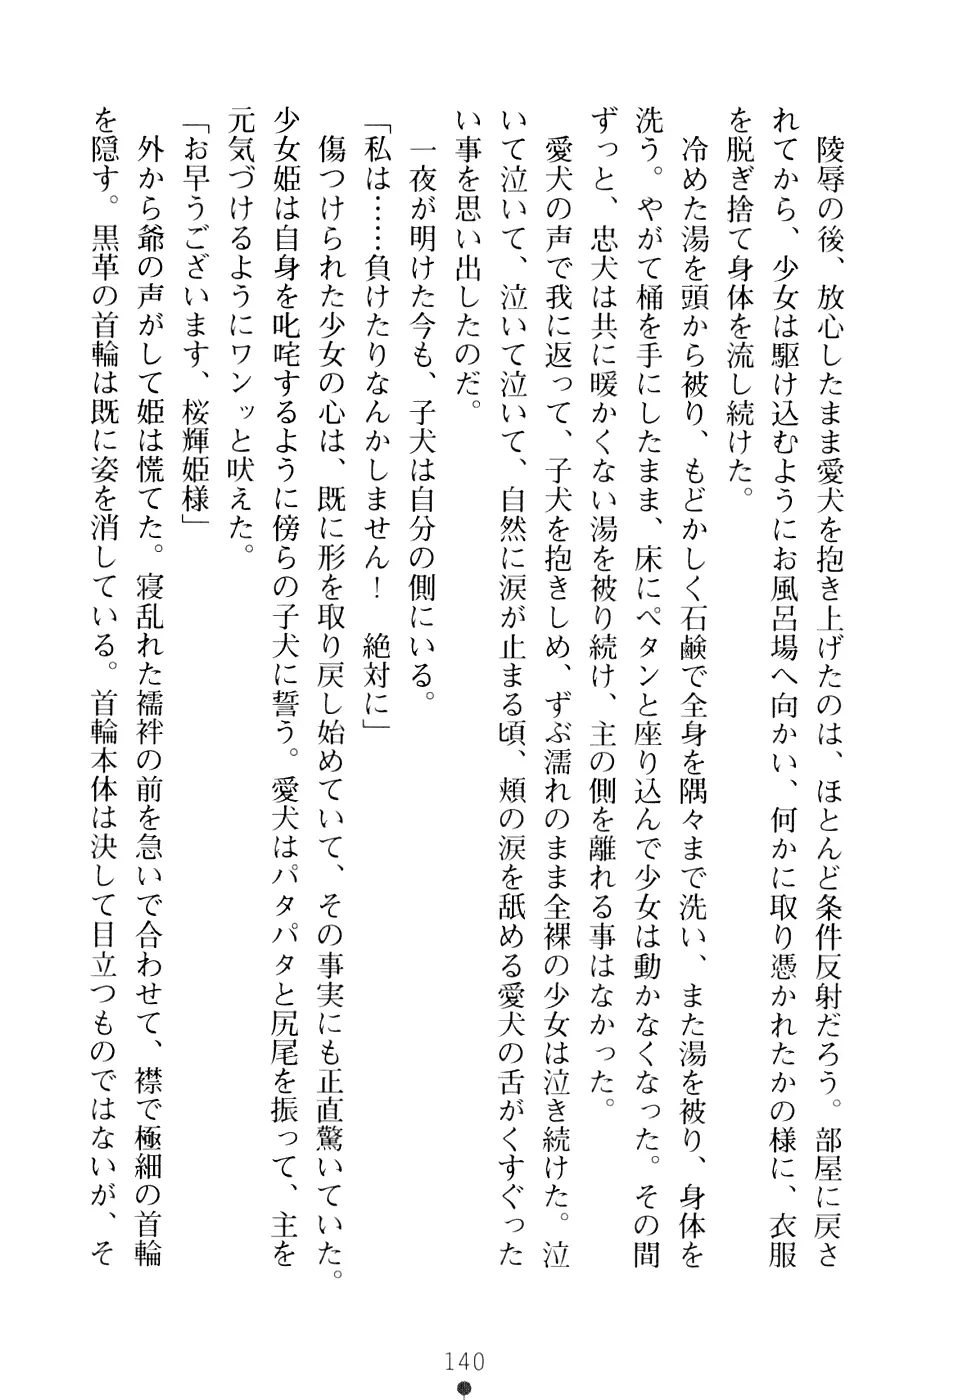 陵辱の後、放心したまま愛犬を抱き上げたのは、ほとんど条件反射だろう。部屋に戻さ
れてから、少女は駆け込むようにお風呂場へ向かい、何かに取り憑かれたかの様に、衣服
を脱ぎ捨て身体を流し続けた。
冷めた湯を頭から被り、もどかしく石鹸で全身を隅々まで洗い、また湯を被り、身体を
洗う。やがて桶を手にしたまま、床にペタンと座り込んで少女は動かなくなった。その間
ずっと、忠犬は共に暖かくない湯を被り続け、主の側を離れる事はなかった。
愛犬の声で我に返って、子犬を抱きしめ、ずぶ濡れのまま全裸の少女は泣き続けた。泣
いて泣いて、泣いて泣いて、自然に涙が止まる頃、頬の涙を舐める愛犬の舌がくすぐった
い事を思い出したのだ。
一夜が明けた今も、子犬は自分の側にいる。
「私は……負けたりなんかしません!　絶対に」
傷つけられた少女の心は、既に形を取り戻し始めていて、その事実にも正直驚いていた。
少女姫は自身を叱咤するように傍らの子犬に誓う。愛犬はパタパタと尻尾を振って、主を
元気づけるようにワンッと吠えた。
「お早うございます、桜輝姫様」
外から爺の声がして姫は慌てた。寝乱れた襦袢の前を急いで合わせて、襟で極細の首輪
を隠す。黒革の首輪は既に姿を消している。首輪本体は決して目立つものではないが、そ
140